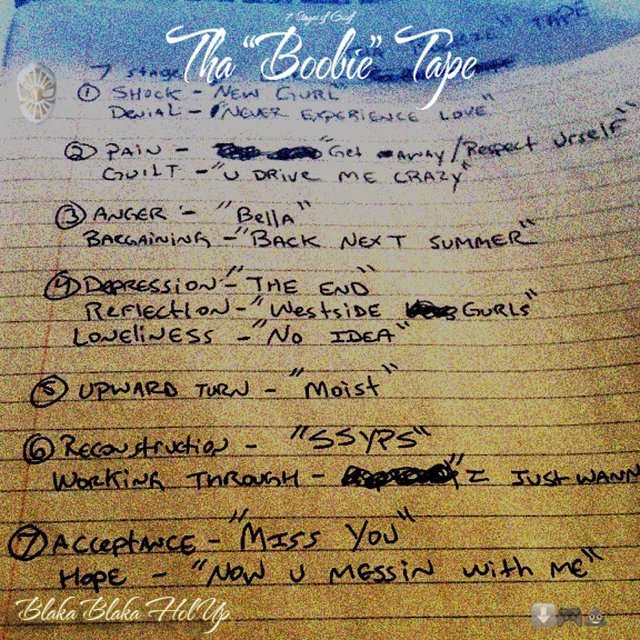 7 Stages of Grief
Tha "Boobie" Tape
TAPE
7 stage
① SHOCK - NEW GURL
DENIAL - "NEVER EXPERIENCE LOVE"
② PAIN - "Get AWAY/RESPECT URSELF"
GUILT - "U DRIVE ME CRAZY"
③ ANGER - "BELLA"
BARGAINING - "BACK NEXT SUMMER"
④ DEPRESSION - "THE END"
REFLECTION - "WESTSIDE GURLS"
LONELINESS - "NO IDEA"
⑤ UPWARD TURN - "MOIST"
⑥ RECONSTRUCTION - "SSYPS"
WORKING THROUGH - "I JUST WANN
⑦ ACCEPTANCE - "MISS YOU"
HOPE - "NOW U MESSIN WITH ME"
Blaka Blaka Hol Up